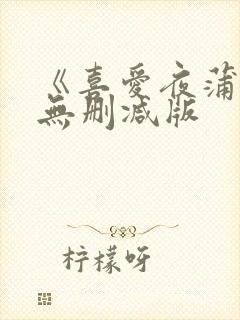 《喜爱夜蒲
無删减版
柠檬呀